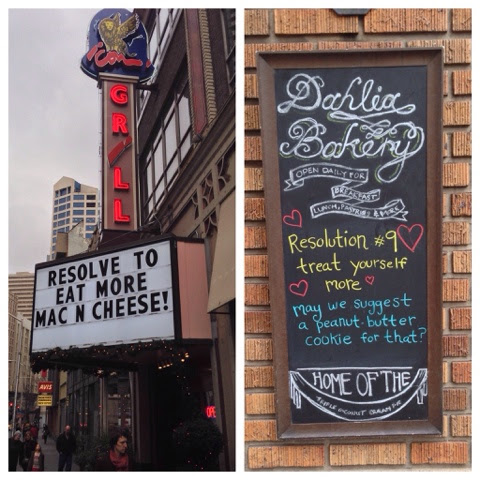 icon
GRILL
RESOLVE TO
EAT MORE
MAC N CHEESE!
AVIS
OPEN
Dahlia
Bakery
OPEN DAILY FOR
BREAKFAST
LUNCH, PASTRIES & MORE
Resolution #9
treat yourself
more
may we suggest
a peanut butter
cookie for that?
HOME OF THE
TRIPLE COCONUT CREAM PIE